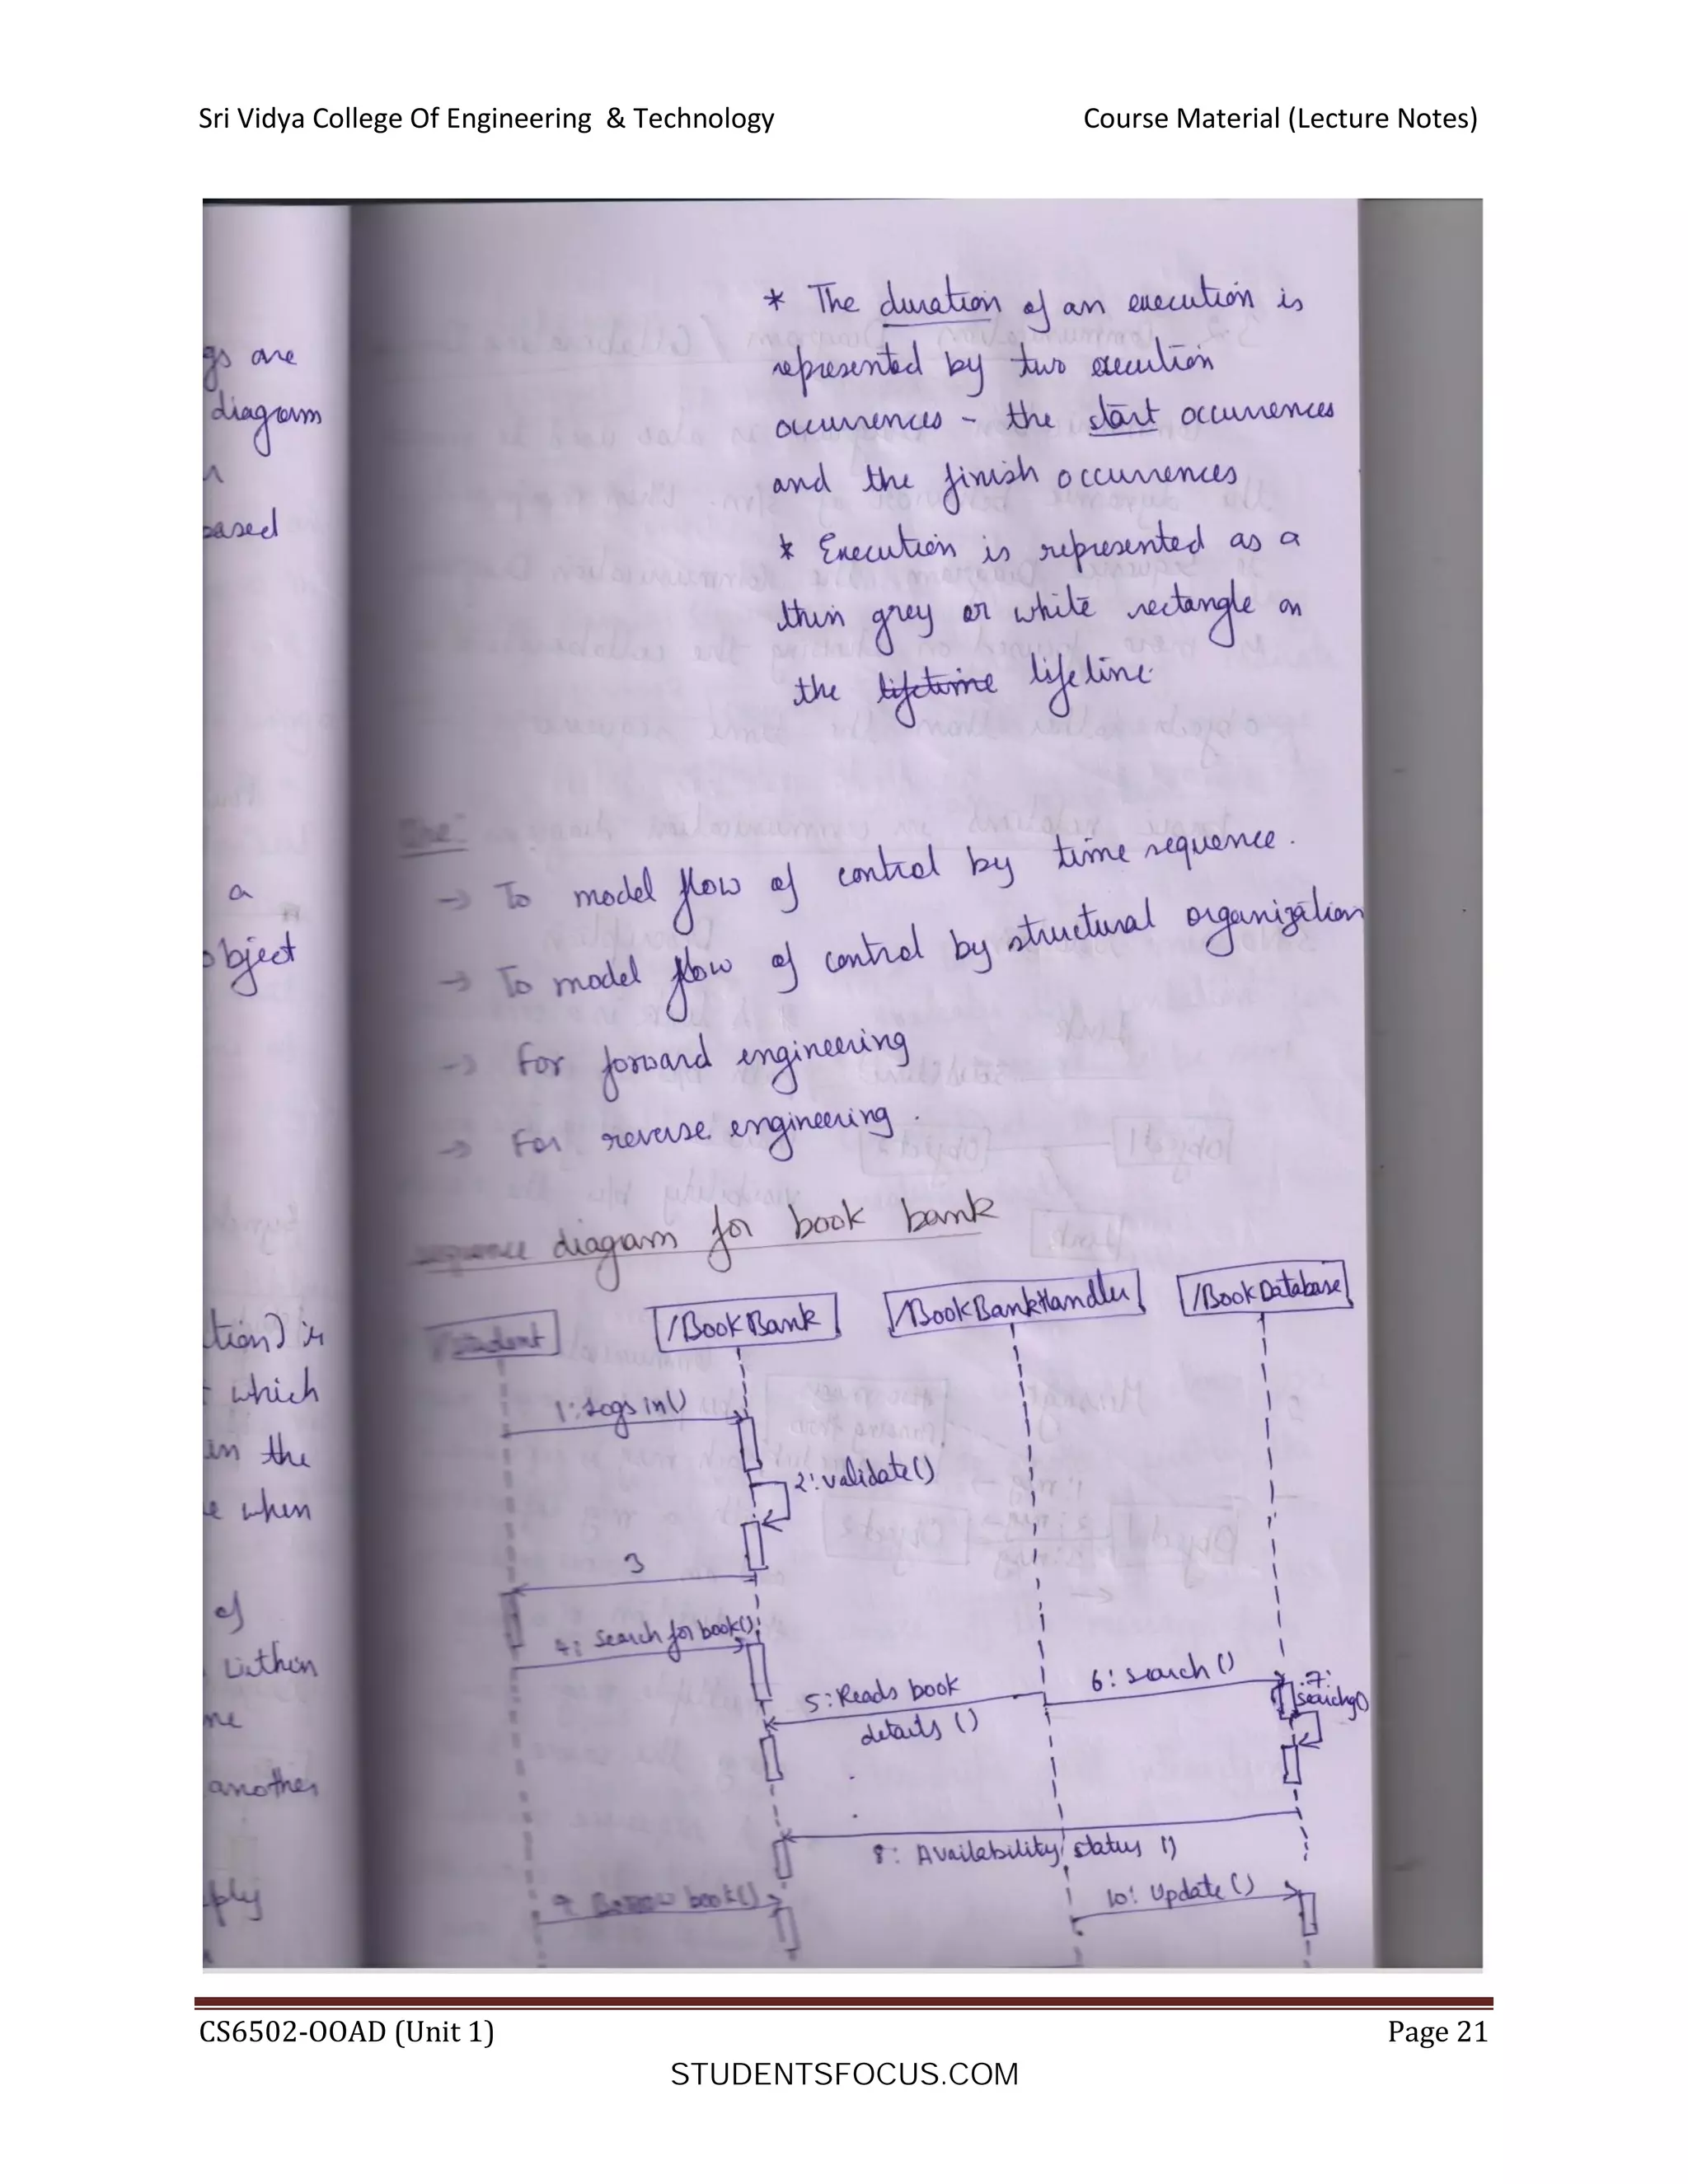 Sri Vidya College Of Engineering & Technology Course Material (Lecture Notes)
gs are
diagram
ased
a
object
ction) is
which
in the
e when
of
within
ne
another
ply
* The duration of an execution is
represented by two execution
occurrences - the start occurrences
and the finish occurrences
* Execution is represented as a
thin grey or white rectangle on
the lifetime lifeline
Use:
→ To model flow of control by time sequence.
→ To model flow of control by structural organization
→ For forward engineering
→ For reverse engineering.
sequence diagram for book bank
/Student /BookBank /BookBankHandler /BookDatabase
1: Logs in()
2: validate()
3
4: Search for book()
5: Reads book
details ()
6: search ()
7:
searchg()
8: Availability status ()
9 Borrow book()
10: Update ()
CS6502-OOAD (Unit 1) Page 21
STUDENTSFOCUS.COM